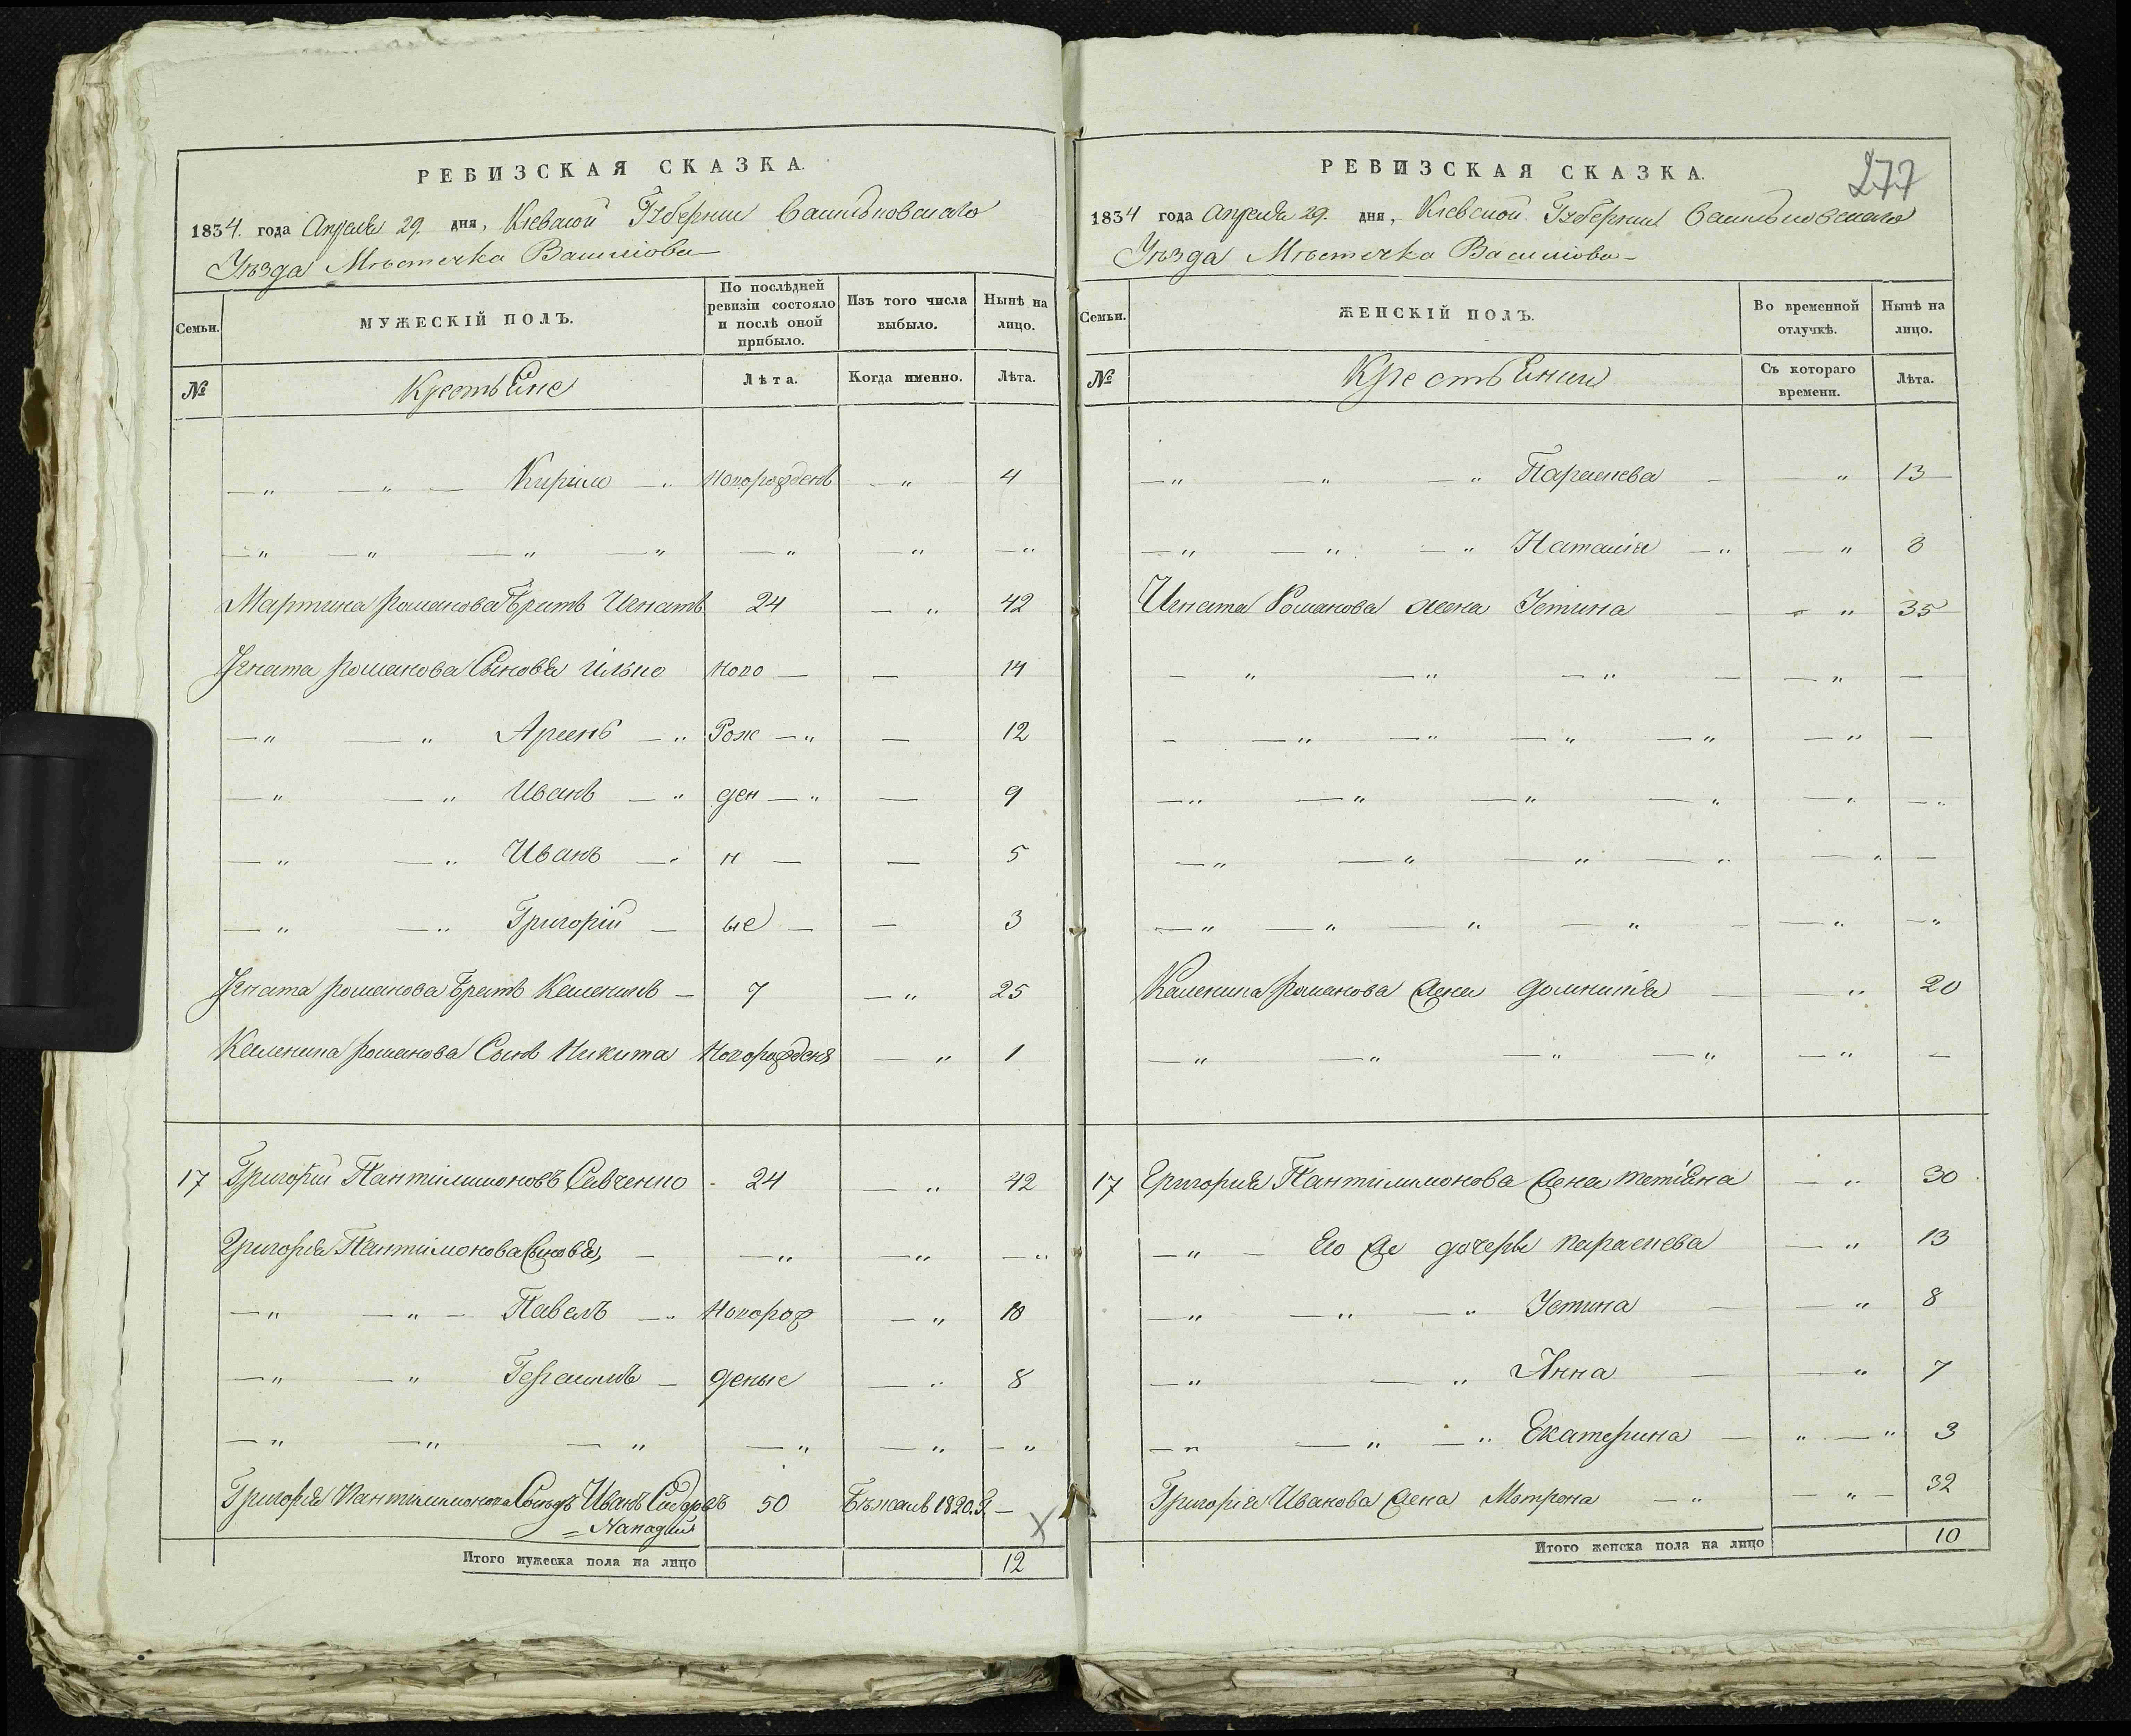 РЕВИЗСКАЯ СКАЗКА.
1834. года Апреля 29. дня, Кіевской Губерніи Сквирского
Уѣзда Мѣстечка
Семьи.
МУЖЕСКІЙ ПОЛЪ.
По послѣдней ревизіи состояло и послѣ оной прибыло.
Изъ того числа выбыло.
Нынѣ на лицо.
№
Крестьяне
Лѣта.
Когда именно.
Лѣта.
—„ „ — Кирило —„ новорожденъ —„ 4
—„ —„ —„ —„ —„ —„ —„
Мартина романова Братъ Игнатъ 24 —„ 42
Игната романова Сыновья Илько ново — — 14
—„ —„ —„ Рож —„ — 12
—„ —„ Иванъ —„ ден —„ — 9
—„ —„ Иванъ —„ н — — 5
—„ —„ Григорій — ые — — 3
Игната романова Братъ Каленикъ — 7 —„ 25
Каленика романова Сынъ Никита Новорожденъ —„ 1
17 Григорій Пантилимоновъ Савченко - 24 —„ 42
Григорія Пантилмонова Сыновья, — —„ —„ —„
—„ —„ — Павелъ —„ Новорож —„ 10
—„ —„ Герасимъ — деные —„ 8
—„ —„ —„ —„ „ —„
Григорія Пантилимонова Сосѣдъ Иванъ Сидоръ 50 Бѣжалъ 1820. Г. —
X
Итого мужеска пола на лицо 12
РЕВИЗСКАЯ СКАЗКА.
277
1834 года Апреля 29. дня, Кіевской Губерніи
Уѣзда Мѣстечка
Семьи.
ЖЕНСКІЙ ПОЛЪ.
Во временной отлучкѣ.
Нынѣ на лицо.
№
Крестьянки
Съ котораго времени.
Лѣта.
—„ „ —„ Параскева — —„ 13
—„ —„ —„ Наталія —„ —„ 8
Игната Романова жена Устина — —„ 35
- „ —„ —„ — —„ —
- —„ —„ —„ —„ —„ —
—„ —„ —„ —„ —„ —„
—„ —„ —„ —„ —„ —
—„ —„ —„ —„ — —„ —„
Каленика романова жена — —„ 20
—„ —„ —„ —„ —„ —
17 Григорія Пантилимонова жена Тетіяна —„ 30
—„ — Его же дочерье параскева —„ 13
—„ —„ —„ Устина — —„ 8
—„ —„ Анна — —„ 7
—„ —„ —„ Екатерина — „ —„ 3
Григорія Иванова жена Мотрона —„ —„ — 32
Итого женска пола на лицо 10